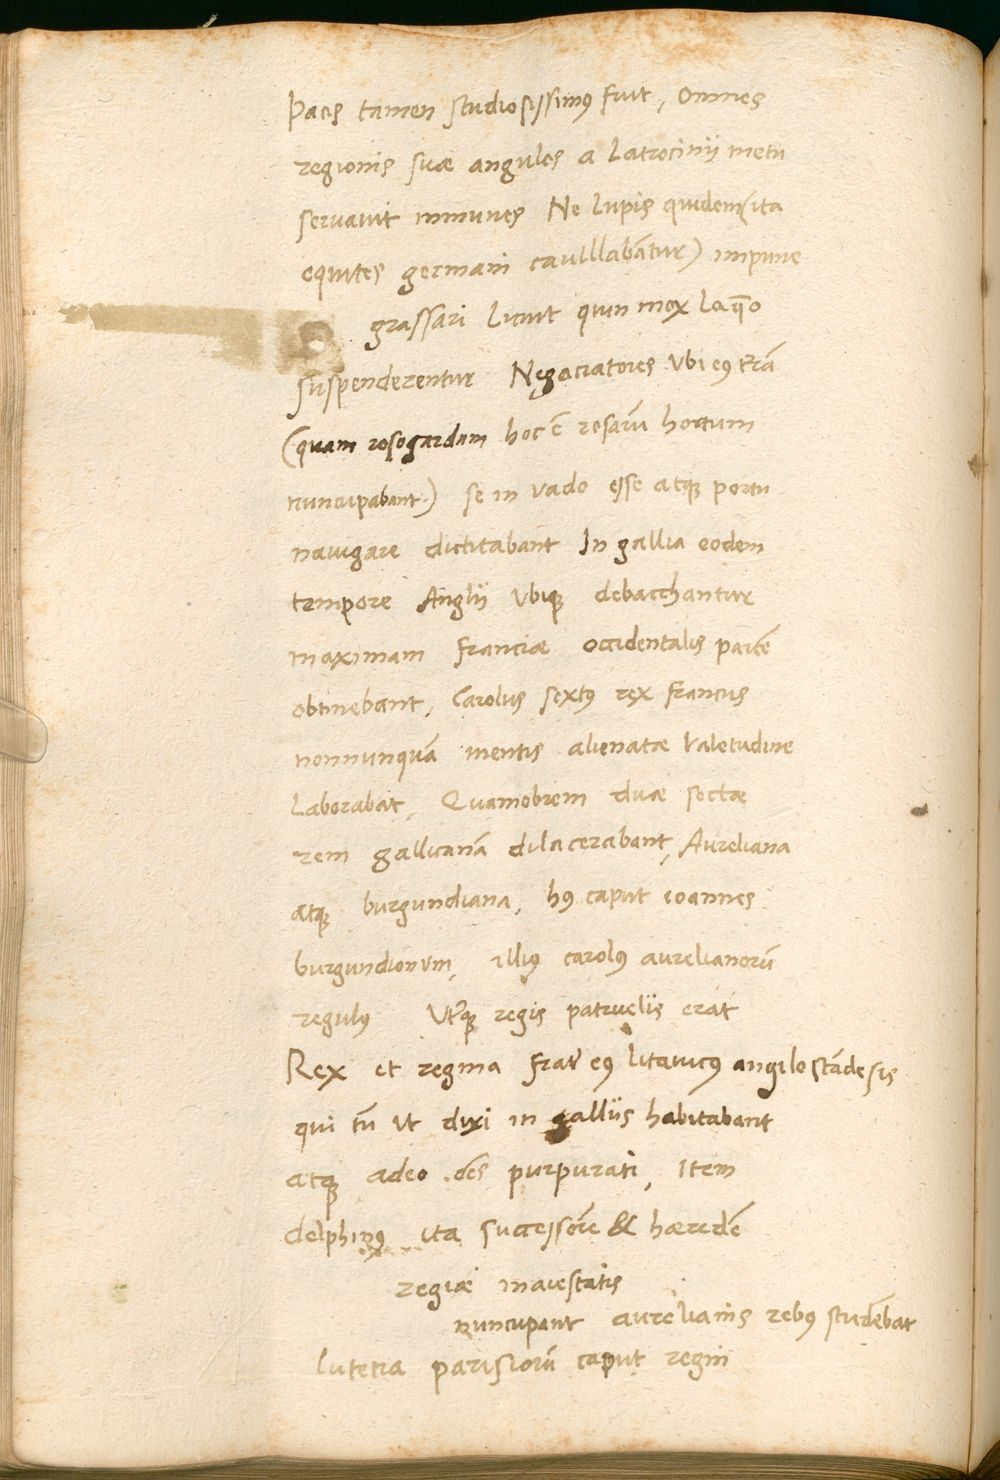 Pacis tamen studiosissimꝰ fuit, Omnes
regionis suæ angulos a Latrocinij metu
servavit inmunes Ne lupis quidem (ita
equites germani cavilllabãtur) impune
grassari licuit quin mox Laq̄o
suspenderentur Negaciatores Vbi eꝰ trã
(quam rosogardam hoc ē rosarũ hortum
nuncupabant) se in vado esse atqꝫ portu
navigare dictitabant In gallia eodem
tempore Anglij Vbiqꝫ debacchantur
maximam franciæ occidentalis partẽ
obtinebant, Carolus sextꝰ rex francus
nonnunquã mentis alienatæ Valetudine
Laborabat, Quamobrem duæ sectæ
rem gallicanã dilacerabant, Aureliana
atqꝫ burgundiana, hꝰ caput eoannes
burgundionum, illiꝰ carolꝰ aurelianorũ
regulꝰ Vtqꝫ regis patruelis erat
Rex et regina frat̃ eꝰ litavicꝰ angilostãdesis
qui tũ ut dixi in gallijs habitabant
atqꝫ adeo oẽs purpurati, Item
delphinꝰ ita successorẽ & hæredẽ
regiæ maiestatis
nuncupant aurelianis rebꝰ studẽbat
lutetia parisiorũ caput regni